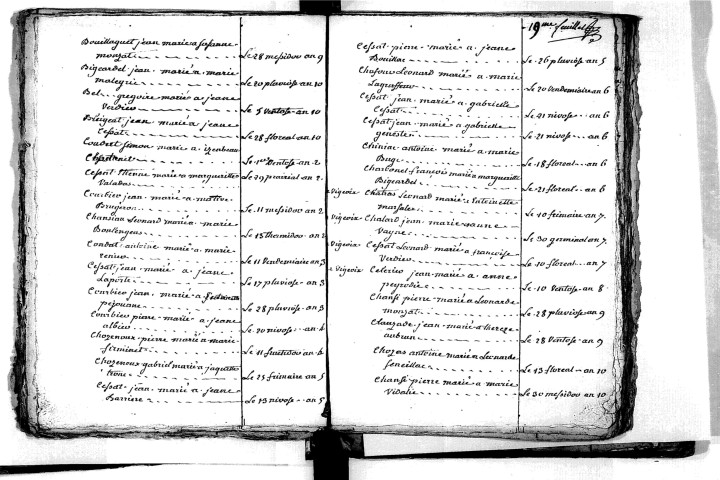 Bouillaguet jean marié a
monzat - - - Le 28 messidor an 9
Bigeardel jean - marié - a marie
malegrie - - - Le 20 pluviose an 10
Bel - gregoire marié a jeane
Verdier - - - Le 5 Ventose an 10
jean marié a jeane
Cessat - - - Le 28 floreal an 10
Coudert simon marié a
Le 1er Ventose an 2
Cessat Etienne marié a margueritte
Valadas - - - Le 29 prairial an 2
Courbier jean marié a
Brugeron - - - Le 11 messidor an 2
Leonard marié a marie
Bontengeas - - - Le 15 thamidor an 2
Condat antoine marié a marie
Le 11 Vendemiaire an 3
Cessat jean marié a jeane
Laporte - - - Le 17 pluviose an 3
Courbier jean marié a
pejouane - - - Le 28 pluviose an 3
Courbier pierre marié a jeane
albier - - - Le 20 nivose an 4
Chozenoux pierre marié a marie
firminet - - - Le 11 fructidor an 4
Chozenoux gabriel marié a
Le 25 frimaire an 5
Cessat jean marié a jeane
Barriere - - - Le 19 nivose an 5
19me feuillet
Cessat pierre marié a jeane
Bouillac - - - Le 26 pluviose an 5
Leonard marié a marie
Le 20 Vendemiaire an 6
Cessat jean marié a gabrielle
Cessat - - - Le 21 nivose an 6
Cessat jean marié a gabrielle
genestes - - - Le 21 nivose an 6
Chiniac antoine marié a marie
Buge - - - Le 18 floreal an 6
Charbonel françois marié a marguerite
Bigeardel - - - Le 21 floreal an 6
Vigeois Chatras Leonard marié a antoinette
Le 10 frimaire an 7
Vigeois Chalard jean marié anne
Vayne - - - Le 30 germinal an 7
Vigeois Cessat Leonard marié a françoise
Verdier - - - Le 10 floreal an 7
Vigeois Celerier jean marié a anne
peyrodie - - - Le 10 Ventose an 8
Chansi pierre marié a Leonarde
monzat - - - Le 28 pluviose an 9
Clauzade jean marié a thereze
aubran - - - Le 28 Ventose an 9
Chozas antoine marié a Leonarde
Seneillac - - - Le 13 floreal an 10
Chansi pierre marié a marie
Vidalie - - - Le 30 messidor an 10